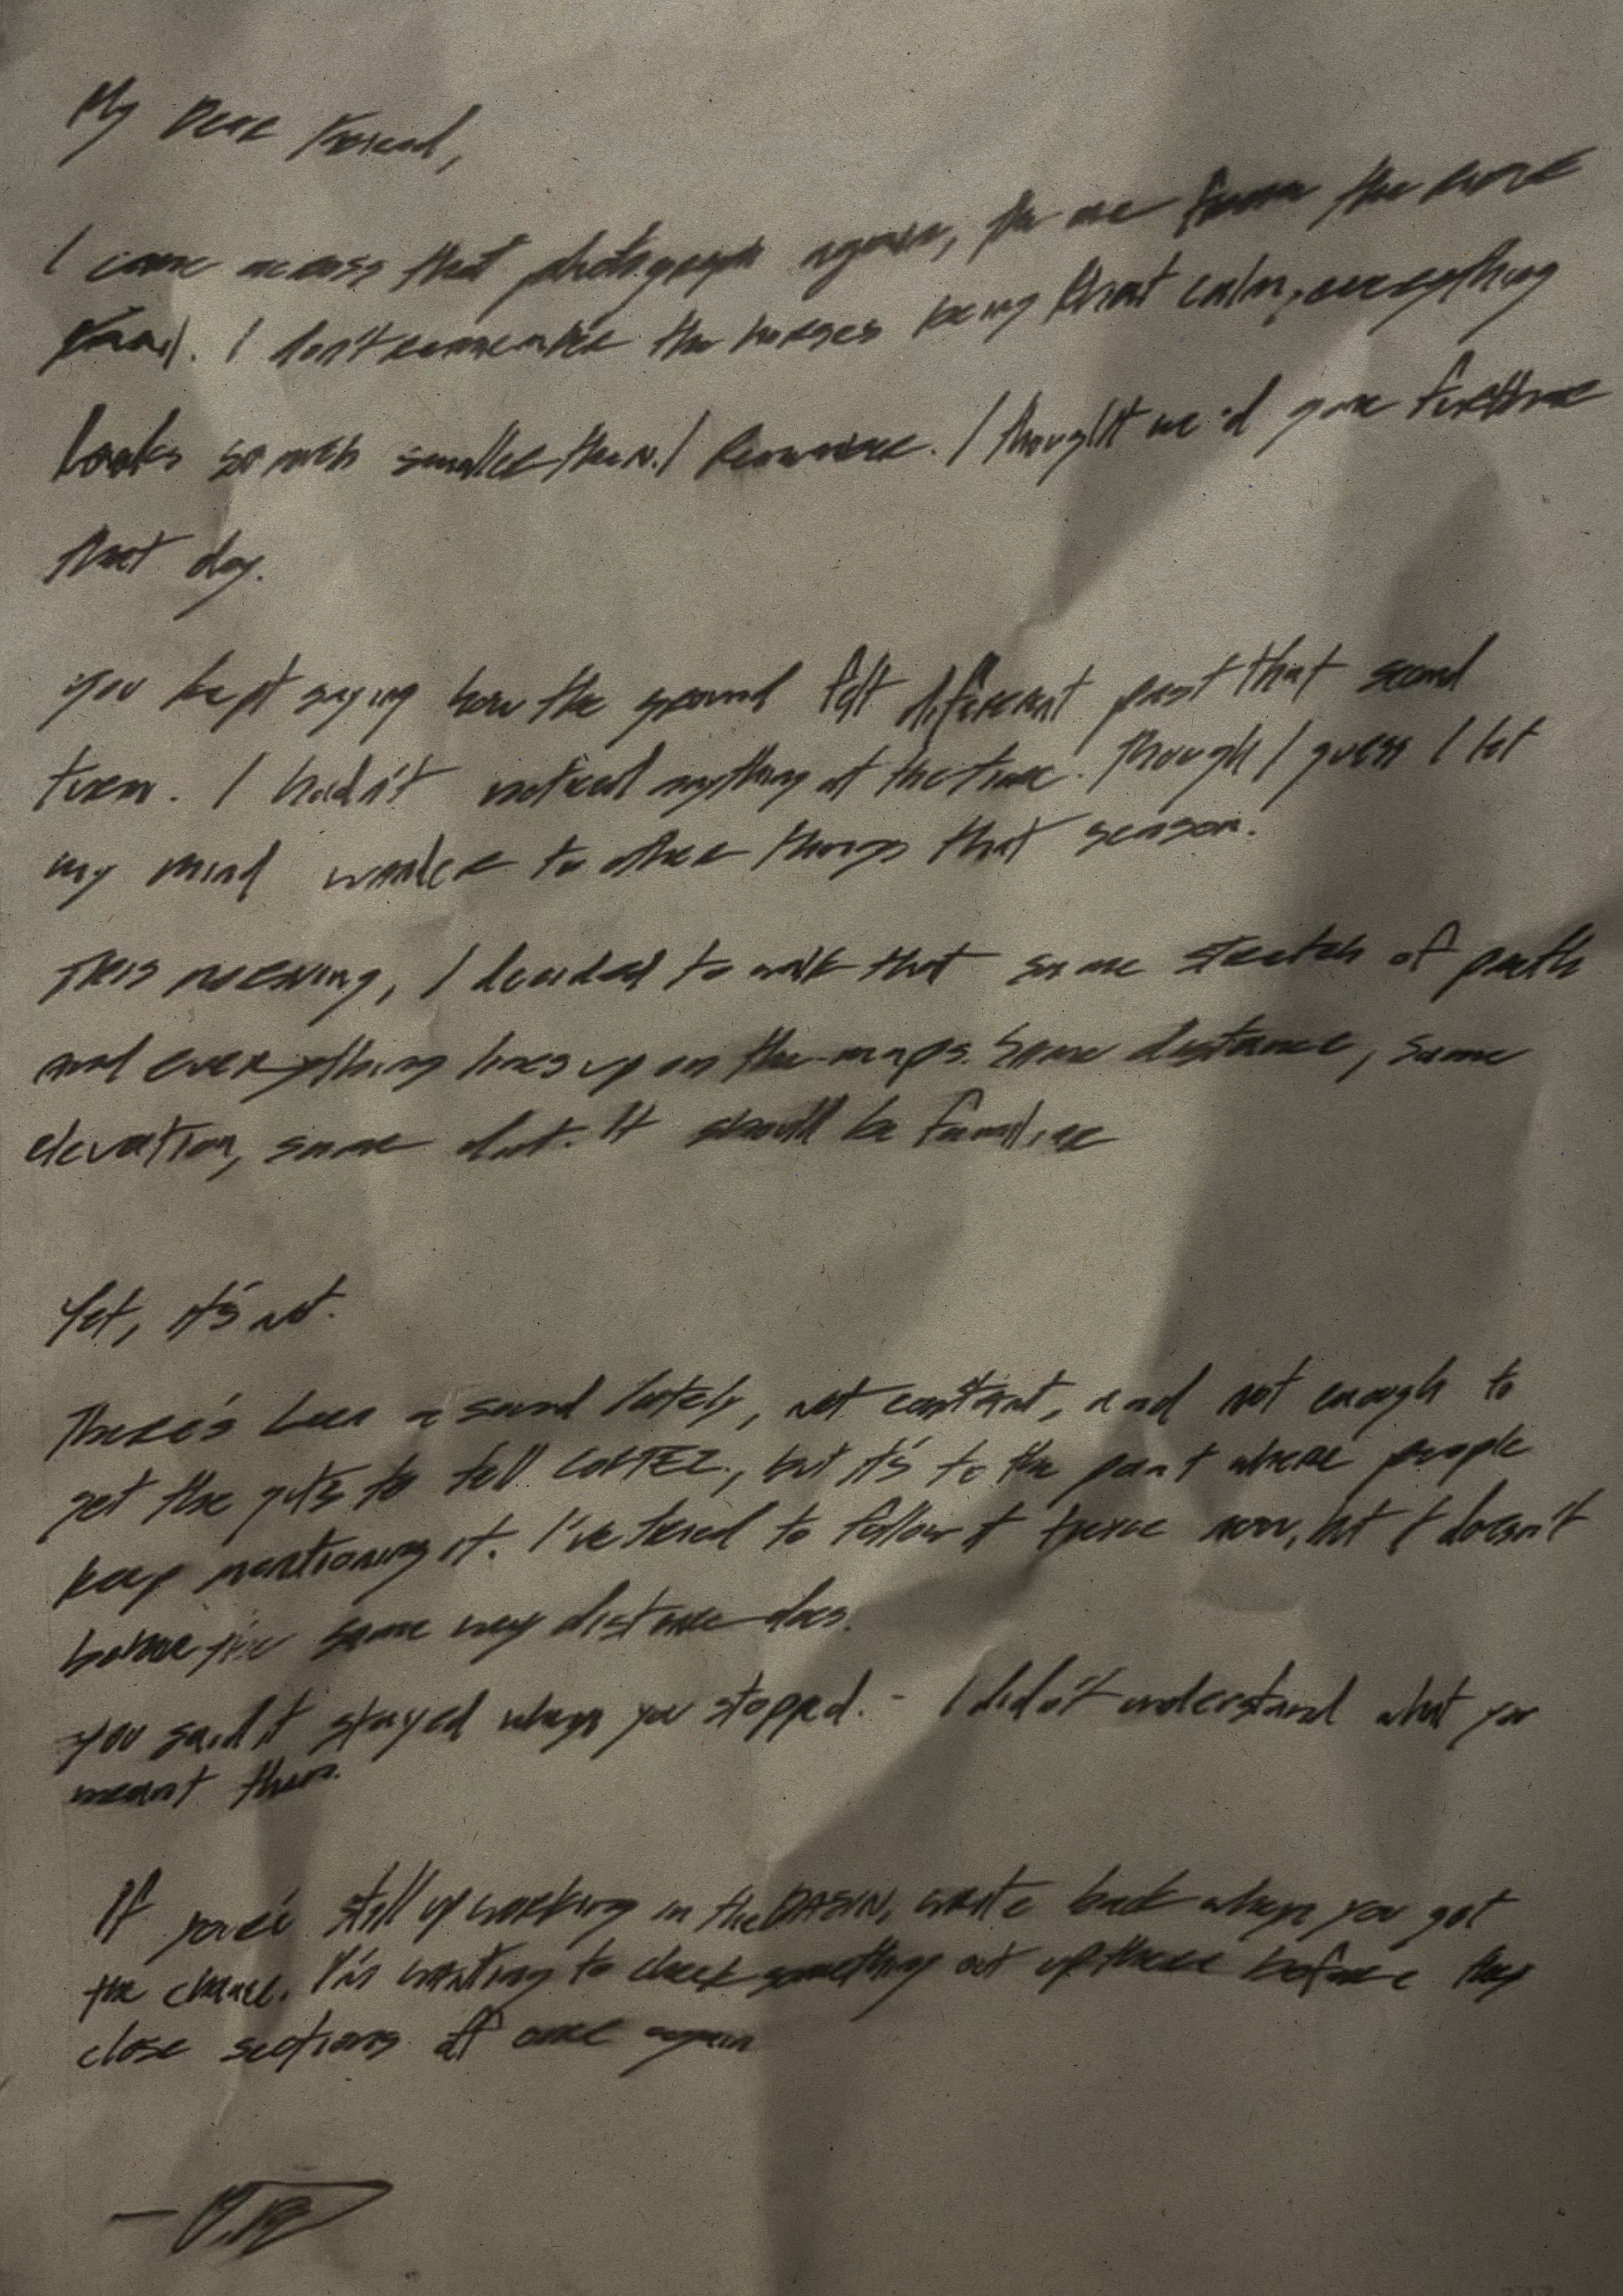 My Dear Friend,
I came across that photograph again, the one from the
trail. I don't remember the horses being that calm, everything
looks so much smaller then I remember. I thought we'd gone further
that day.
you kept saying how the ground felt different past that second
turn. I hadn't noticed anything at the time. Though I guess I let
my mind wander to other things that season.
This morning, I decided to walk that same stretch of path
and everything lines up on the maps. Same distance, same
elevation, same dirt. It should be familiar
Yet, it's not.
There's been a sound lately, not constant, and not enough to
get the guts to tell CORTEZ., but it's to the point where people
keep mentioning it. I've tried to follow it twice now, but it doesn't
behave the same way distance does.
you said it stayed when you stopped. - I didn't understand what you
meant then.
If you're still up working in the BASIN, write back when you get
the chance. I'm wanting to check something out up there before they
close sections off once again